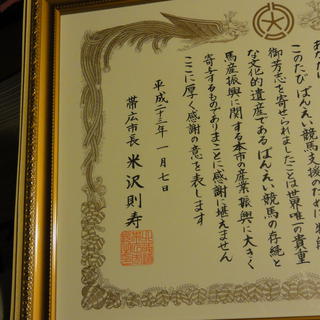 このたびばんえい競馬支援のために
御芳志を寄せられましたことは世界唯一の貴重
な文化的遺産であるばんえい競馬の存続と
馬産振興に関する本市の産業振興に大きく
寄与するものでありまことに感謝に堪えません
ここに厚く感謝の意を表します
平成二十三年一月七日
帯広市長 米沢則寿